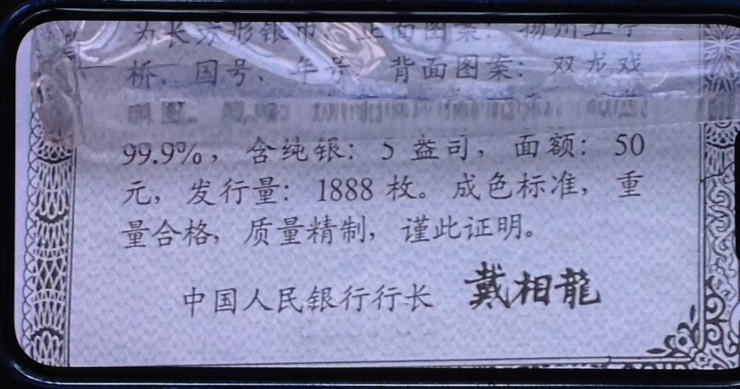 为长方形银币，正面图案：扬州五亭
桥、国号、年号，背面图案：双龙戏
99.9%，含纯银：5 盎司，面额：50
元，发行量：1888 枚。成色标准，重
量合格，质量精制，谨此证明。
中国人民银行行长 戴相龍